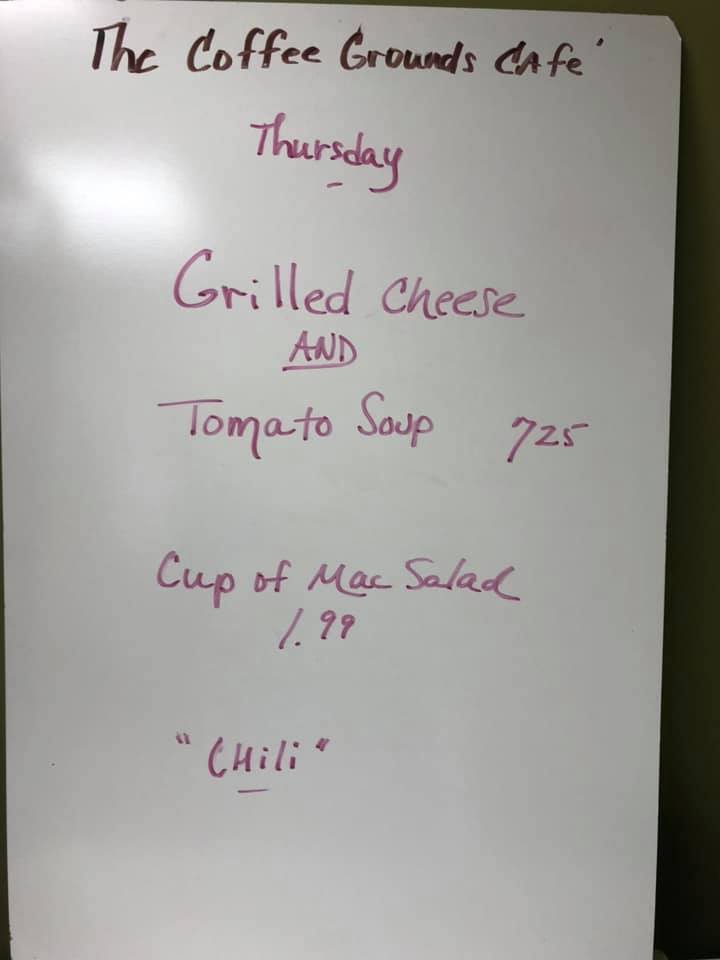 The Coffee Grounds Cafe'
Thursday
Grilled Cheese
AND
Tomato Soup 725
Cup of Mac Salad
1.99
"CHili"